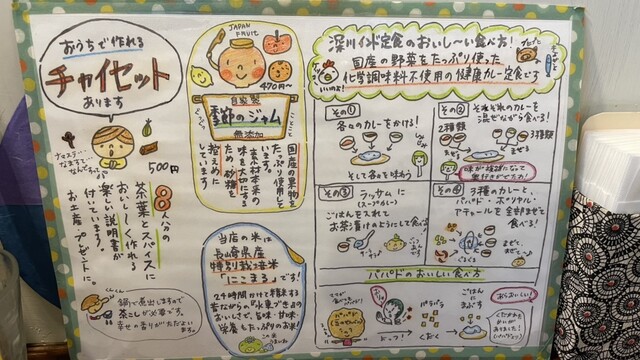 おうちで作れる
チャイセット
あります
500円
8人分の
茶葉とスパイスに
おいし〜く作れる
楽しい説明書が
付いています。
お土産、プレゼントに。
鍋で煮出しますので
茶こしが必要です。
幸せの香りがただよい
ます。
JAPAN
FRUIT
470円〜
自家製
季節のジャム
無添加
国産の果物を
たっぷり使用して
素材本来の
味を大切にする
ため、砂糖を
控えめに
しています
当店の米は
長崎県産
特別栽培米
「にこまる」です!
24時間かけて精米する
昔ながらの「水車づき」の
おいしさで、旨味・甘味・
栄養たっぷりのお米!
深川インド定食のおいし〜い食べ方!
国産の野菜をたっぷり使った
化学調味料不使用の健康カレー定食です
いいのよ!
その①
各々のカレーをかける!
そして各々を味わう
その②
それぞれのカレーを
混ぜながら食べる!
2種類
3種類
まぜる
まぜる
味が複雑になって
その③
ラッサムに
(スープカレー)
ごはんを入れて
お茶漬けのようにして食べる!
その④
3種のカレーと、
パパド・ポリヤル・
アチャールを全部まぜて
食べる!
まぜて、
パパドのおいしい食べ方
パパド
ドーン!
パラパラ
くだく
ごはんに
まぶす
おもおいしい!